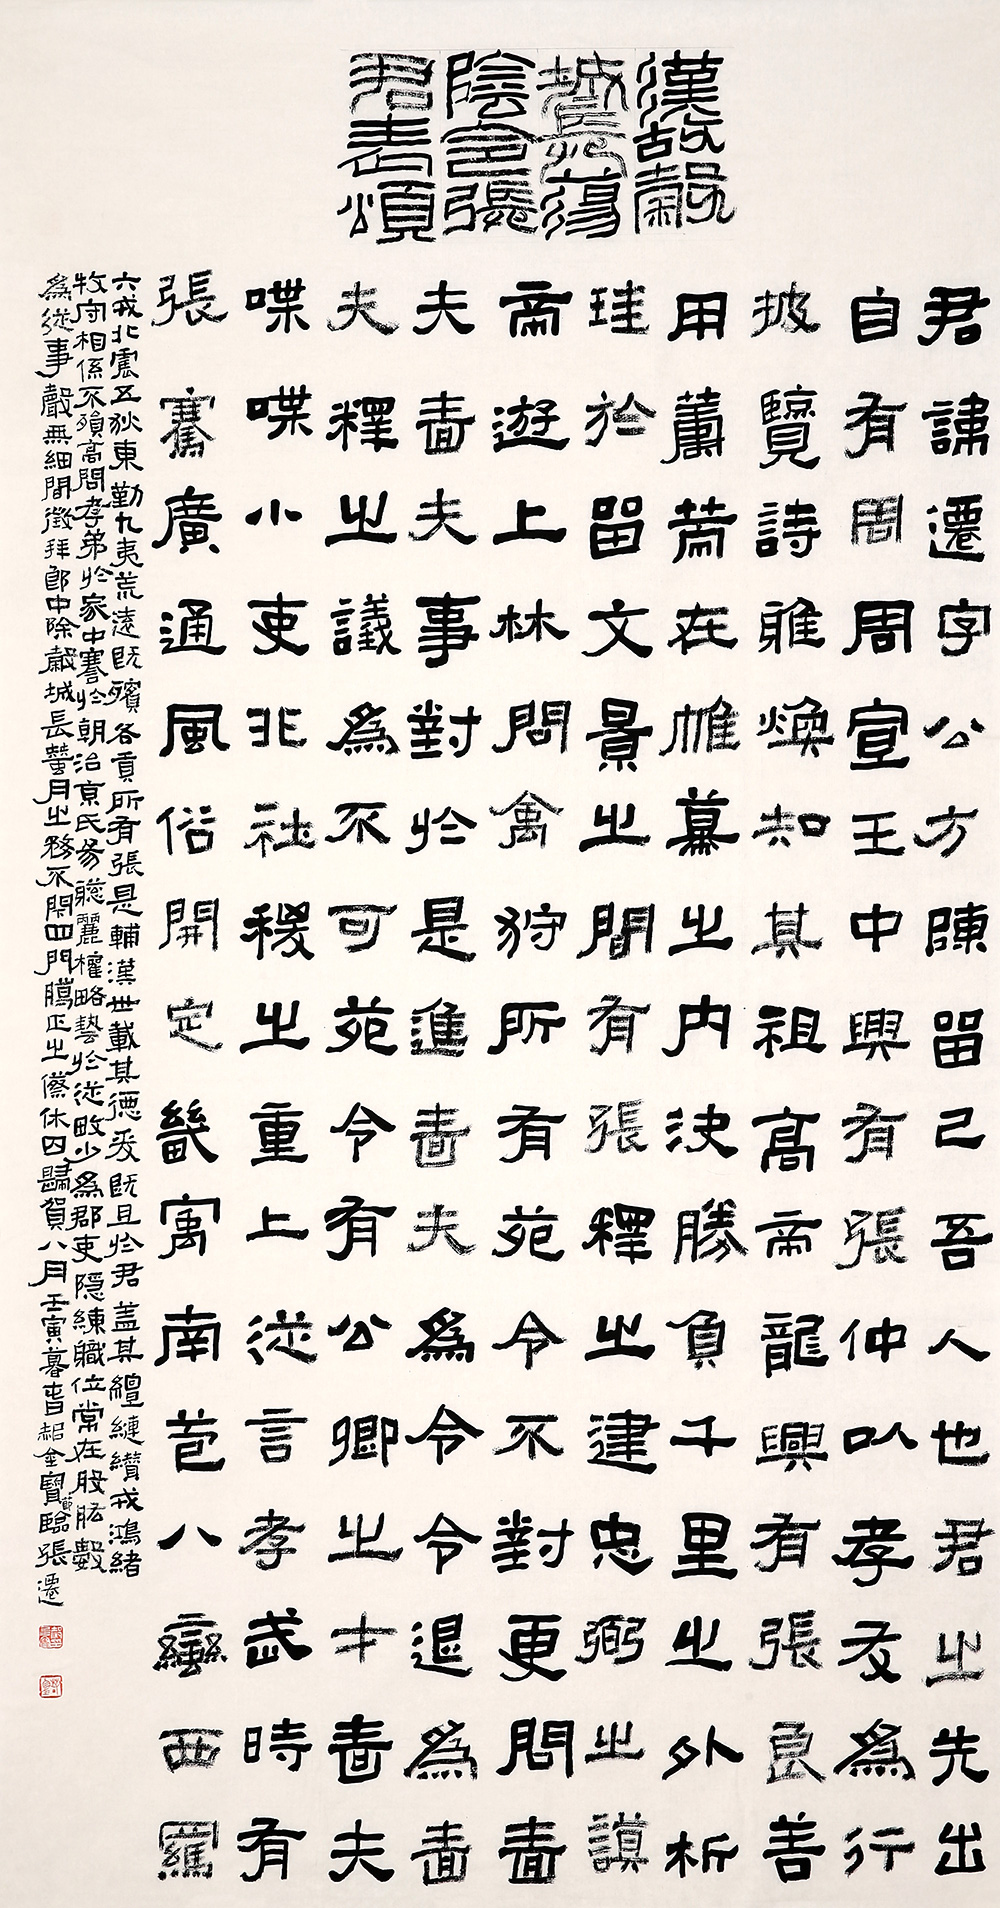 漢故穀
城長蕩
陰令張
君表頌
君諱遷字公方陳留己吾人也君之先出
自有周周宣王中興有張仲以孝友為行
披覽詩雅煥知其祖高帝龍興有張良善
用籌策在帷幕之内決勝負千里之外析
珪於留文景之間有張釋之建忠弼之謨
帝遊上林問禽狩所有苑令不對更問嗇
夫嗇夫事對於是進嗇夫為令令退為嗇
夫釋之議為不可苑令有公卿之才嗇夫
喋喋小吏非社稷之重上從言孝武時有
張騫廣通風俗開定畿寓南苞八蠻西羈
六戎北震五狄東勤九夷荒遠既殯各貢所有張是輔漢世載其德爰既且於君蓋其繵縺纘戎鴻緒
牧守相係不殞高問孝弟於家中謇於朝治京氏易聰麗權略藝於從畋少為郡吏隱練職位常在股肱數
為從事聲無細聞徵拜郎中除穀城長蠶月之務不閉四門臘正之僚休囚歸賀八月壬寅暮春金寶節臨張遷